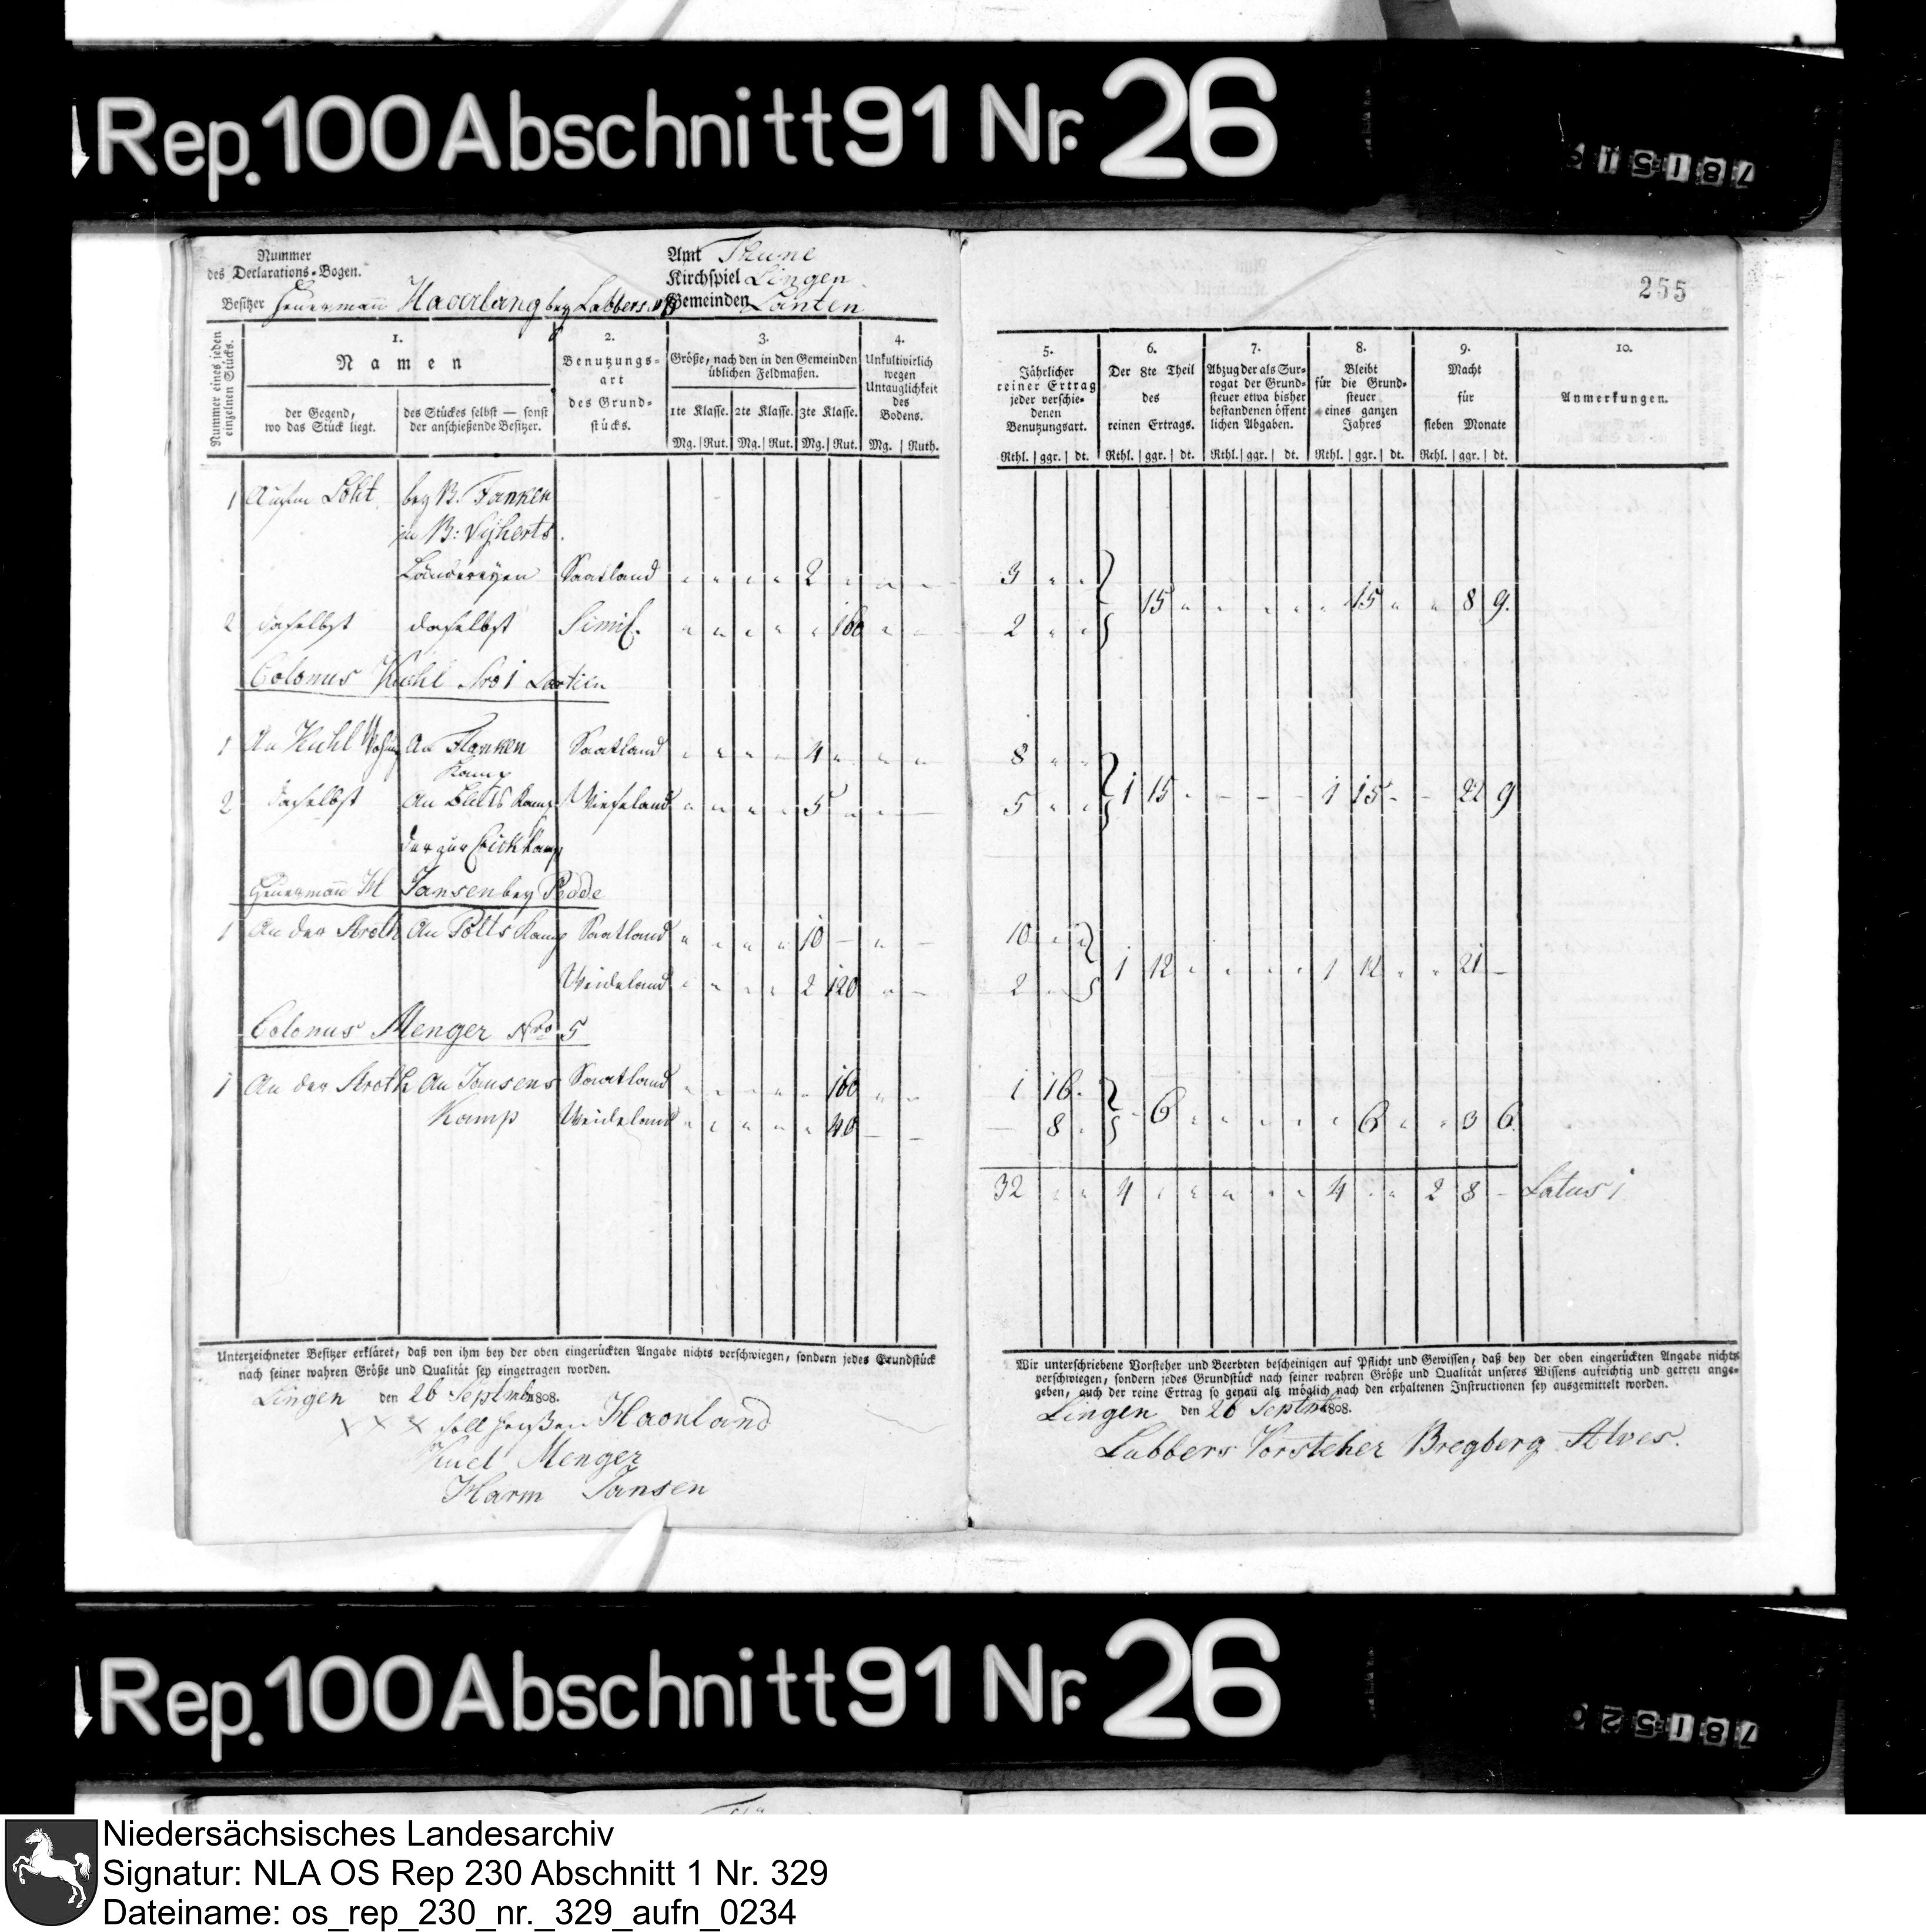 Rep. 100 Abschnitt 91 Nr. 26
78151
Nummer
des Declarations-Bogen.
Besitzer Heuermann Haverlang bey Lubbers
Amt Thune
Kirchspiel Lingen
Gemeinden Lanten
255
Nummer eines jeden einzelnen Stücks.
1.
Namen
der Gegend, wo das Stück liegt.
des Stückes selbst — sonst der anschießende Besitzer.
2.
Benutzungsart des Grundstücks.
3.
Größe, nach den in den Gemeinden üblichen Feldmaßen.
1te Klasse. 2te Klasse. 3te Klasse.
Mg. Rut. Mg. Rut. Mg. Rut.
4.
Unkultivirlich wegen Untauglichkeit des Bodens.
Mg. Ruth.
5.
Jährlicher reiner Ertrag jeder verschiedenen Benutzungsart.
Rthl. ggr. dt.
6.
Der 8te Theil des reinen Ertrags.
Rthl. ggr. dt.
7.
Abzug der als Surrogat der Grundsteuer etwa bisher bestandenen öffentlichen Abgaben.
Rthl. ggr. dt.
8.
Bleibt für die Grundsteuer eines ganzen Jahres
Rthl. ggr. dt.
9.
Macht für sieben Monate
Rthl. ggr. dt.
10.
Anmerkungen.
1 bey B.
Ländereyen Saatland 2 3
15 15 8 9.
2 daselbst daselbst Simil. 160 2
Colonus Kuhl Nro 1
1 An Kuhl An Flanken Saatland 4 8
Kamp
2 daselbst An Kamp Wieseland 5 5 1 15 1 15 22 9
Heuermann H Jansen bey Pedde
1 An der Stroth An Potts Kamp Saatland 10 10
Weideland 2 120 2 1 12 1 12 21
Colonus Menger Nro 5
1 An der Stroth An Jansens Saatland 160 1 16
Kamp Weideland 40 8 6 6 3 6
32 4 4 2 8 Latus 1
Unterzeichneter Besitzer erkläret, daß von ihm bey der oben eingerückten Angabe nichts verschwiegen, sondern jedes Grundstück
nach seiner wahren Größe und Qualität sey eingetragen worden.
Lingen den 26 Septmbr 1808.
x x x soll heißen Haonland
Kuel Menger
Harm Jansen
Wir unterschriebene Vorsteher und Beerbten bescheinigen auf Pflicht und Gewissen, daß bey der oben eingerückten Angabe nichts
verschwiegen, sondern jedes Grundstück nach seiner wahren Größe und Qualität unseres Wissens aufrichtig und getreu ange-
geben, auch der reine Ertrag so genau als möglich nach den erhaltenen Instructionen sey ausgemittelt worden.
Lingen den 26 Septmbr 1808.
Lubbers Vorsteher Bregberg Alves.
Rep. 100 Abschnitt 91 Nr. 26
78152
Niedersächsisches Landesarchiv
Signatur: NLA OS Rep 230 Abschnitt 1 Nr. 329
Dateiname: os_rep_230_nr._329_aufn_0234